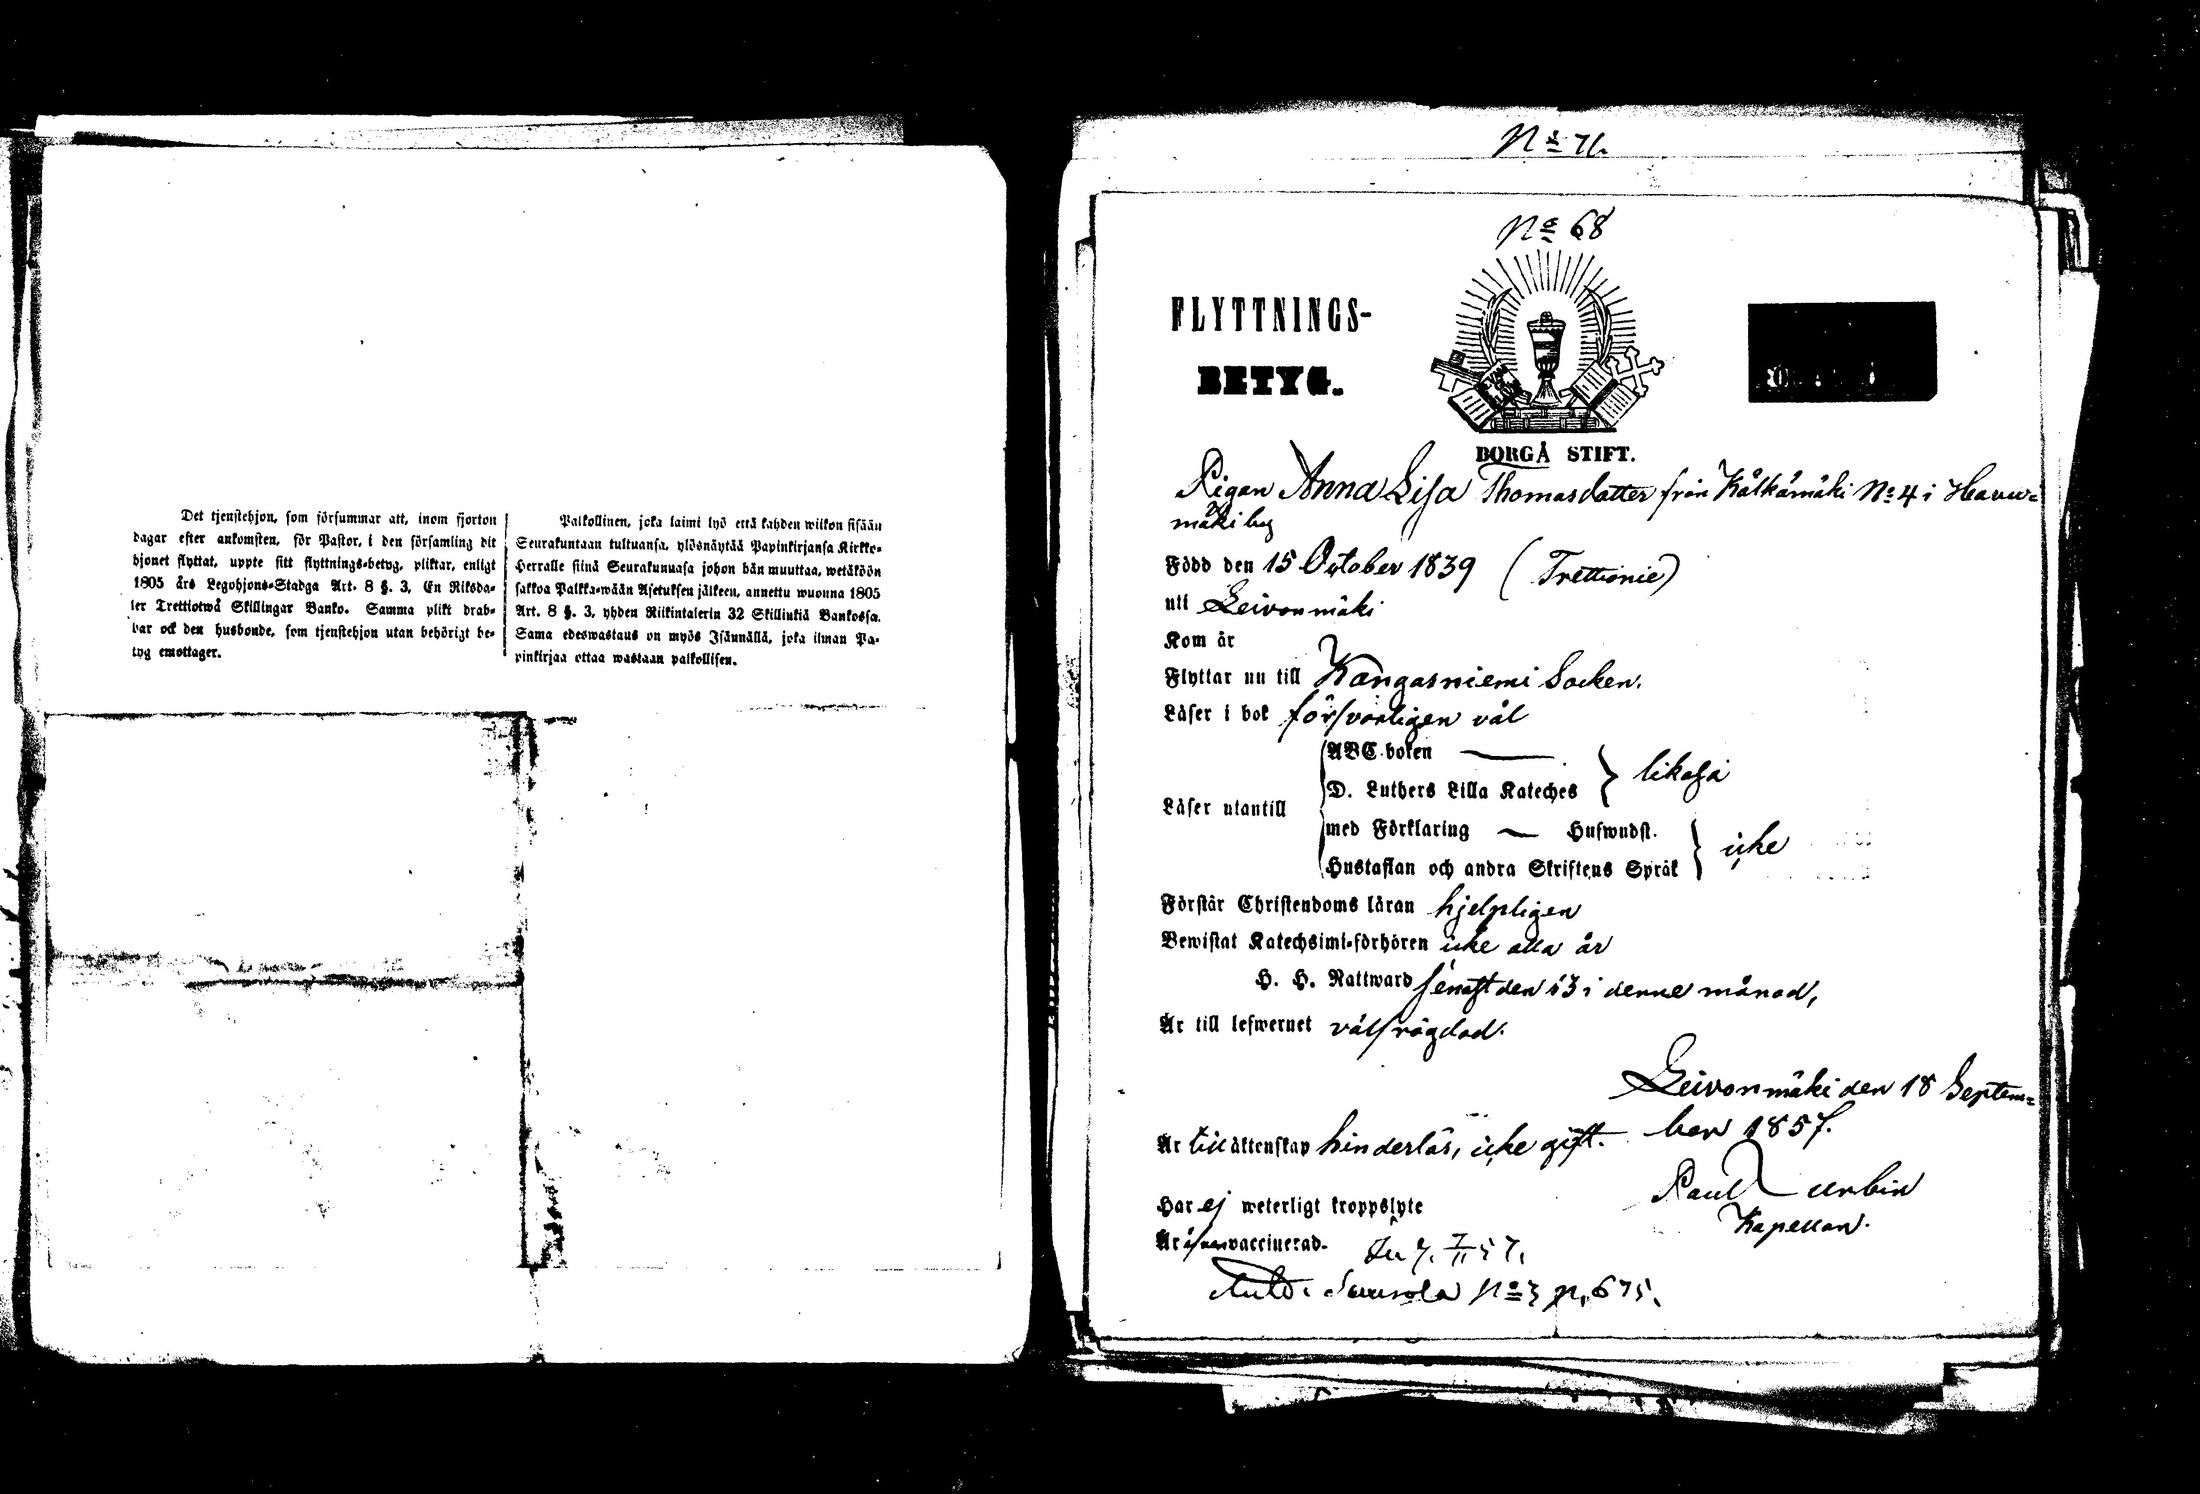 Det tjenstehjon, som försummar att, inom fjorton
dagar efter ankomsten, för Pastor, i den församling dit
hjonet flyttat, uppte sitt flyttnings-betyg, pliktar, enligt
1805 års Legohjons-Stadga Art. 8 §. 3, En Riksda-
ler Trettiotwå Skillingar Banko. Samma plikt drab-
bar ock den husbonde, som tjenstehjon utan behörigt be-
tyg emottager.
Palkollinen, joka laimi lyö että kahden wiikon sisään
Seurakuntaan tultuansa, ylösnäytää Papinkirjansa Kirkko-
Herralle siinä Seurakunuasa johon hän muuttaa, wetäköön
sakkoa Palkka-wään Asetuksen jälkeen, annettu wuonna 1805
Art. 8 §. 3, yhden Riikintalerin 32 Skillinkiä Bankossa.
Sama edeswastaus on myös Isännällä, joka ilman Pa-
pinkirjaa ottaa wastaan palkollisen.
No 71.
No 68
FLYTTNINGS-
BETYG.
BORGÅ STIFT.
Pigan Anna Lisa Thomasdotter från Kälkämäki No 4 i Havu-
mäki by
Född den 15 October 1839 (Trettionie)
uti Leivonmäki
Kom år
Flyttar nu till Kangasniemi Socken.
Läser i bok försvarligen väl
ABC-boken
D. Luthers Lilla Kateches } likaså
Läser utantill
med Förklaring — Huswudst.
Hustaflan och andra Skriftens Språk } icke
Förstår Christendoms läran hjelpligen
Bewistat Katechsimi-förhören icke alla år
H. H. Nattward senast den 13 i denne månad,
Är till lefwernet välfrägdad.
Leivonmäki den 18 Septem-
ber 1857.
Är till äktenskap hinderlös, icke gift.
Paul Urbin
Kapellan.
Har ej weterligt kroppslyte
Är vaccinerad.
No 3 p. 675.